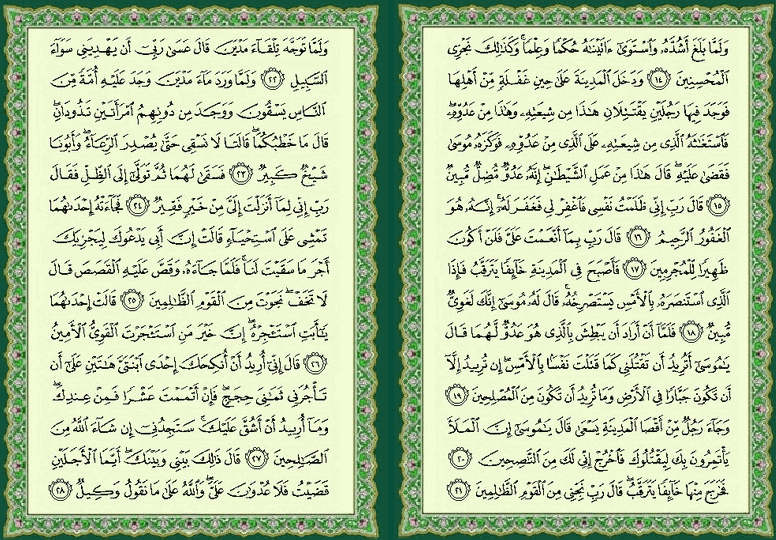 وَلَمَّا بَلَغَ أَشُدَّهُۥ وَٱسْتَوَىٰٓ ءَاتَيْنَـٰهُ حُكْمًا وَعِلْمًا ۚ وَكَذَٰلِكَ نَجْزِى
ٱلْمُحْسِنِينَ ١٤ وَدَخَلَ ٱلْمَدِينَةَ عَلَىٰ حِينِ غَفْلَةٍ مِّنْ أَهْلِهَا
فَوَجَدَ فِيهَا رَجُلَيْنِ يَقْتَتِلَانِ هَـٰذَا مِن شِيعَتِهِۦ وَهَـٰذَا مِنْ عَدُوِّهِۦ ۖ
فَٱسْتَغَـٰثَهُ ٱلَّذِى مِن شِيعَتِهِۦ عَلَى ٱلَّذِى مِنْ عَدُوِّهِۦ فَوَكَزَهُۥ مُوسَىٰ
فَقَضَىٰ عَلَيْهِ ۖ قَالَ هَـٰذَا مِنْ عَمَلِ ٱلشَّيْطَـٰنِ ۖ إِنَّهُۥ عَدُوٌّ مُّضِلٌّ مُّبِينٌ
١٥ قَالَ رَبِّ إِنِّى ظَلَمْتُ نَفْسِى فَٱغْفِرْ لِى فَغَفَرَ لَهُۥٓ ۚ إِنَّهُۥ هُوَ
ٱلْغَفُورُ ٱلرَّحِيمُ ١٦ قَالَ رَبِّ بِمَآ أَنْعَمْتَ عَلَىَّ فَلَنْ أَكُونَ
ظَهِيرًا لِّلْمُجْرِمِينَ ١٧ فَأَصْبَحَ فِى ٱلْمَدِينَةِ خَآئِفًا يَتَرَقَّبُ فَإِذَا
ٱلَّذِى ٱسْتَنصَرَهُۥ بِٱلْأَمْسِ يَسْتَصْرِخُهُۥ ۚ قَالَ لَهُۥ مُوسَىٰٓ إِنَّكَ لَغَوِىٌّ
مُّبِينٌ ١٨ فَلَمَّآ أَنْ أَرَادَ أَن يَبْطِشَ بِٱلَّذِى هُوَ عَدُوٌّ لَّهُمَا قَالَ
يَـٰمُوسَىٰٓ أَتُرِيدُ أَن تَقْتُلَنِى كَمَا قَتَلْتَ نَفْسًۢا بِٱلْأَمْسِ ۖ إِن تُرِيدُ إِلَّآ
أَن تَكُونَ جَبَّارًا فِى ٱلْأَرْضِ وَمَا تُرِيدُ أَن تَكُونَ مِنَ ٱلْمُصْلِحِينَ ١٩
وَجَآءَ رَجُلٌ مِّنْ أَقْصَا ٱلْمَدِينَةِ يَسْعَىٰ قَالَ يَـٰمُوسَىٰٓ إِنَّ ٱلْمَلَأَ
يَأْتَمِرُونَ بِكَ لِيَقْتُلُوكَ فَٱخْرُجْ إِنِّى لَكَ مِنَ ٱلنَّـٰصِحِينَ ٢٠
فَخَرَجَ مِنْهَا خَآئِفًا يَتَرَقَّبُ ۖ قَالَ رَبِّ نَجِّنِى مِنَ ٱلْقَوْمِ ٱلظَّـٰلِمِينَ ٢١
وَلَمَّا تَوَجَّهَ تِلْقَآءَ مَدْيَنَ قَالَ عَسَىٰ رَبِّىٓ أَن يَهْدِيَنِى سَوَآءَ
ٱلسَّبِيلِ ٢٢ وَلَمَّا وَرَدَ مَآءَ مَدْيَنَ وَجَدَ عَلَيْهِ أُمَّةً مِّنَ
ٱلنَّاسِ يَسْقُونَ وَوَجَدَ مِن دُونِهِمُ ٱمْرَأَتَيْنِ تَذُودَانِ ۖ
قَالَ مَا خَطْبُكُمَا ۖ قَالَتَا لَا نَسْقِى حَتَّىٰ يُصْدِرَ ٱلرِّعَآءُ ۖ وَأَبُونَا
شَيْخٌ كَبِيرٌ ٢٣ فَسَقَىٰ لَهُمَا ثُمَّ تَوَلَّىٰٓ إِلَى ٱلظِّلِّ فَقَالَ
رَبِّ إِنِّى لِمَآ أَنزَلْتَ إِلَىَّ مِنْ خَيْرٍ فَقِيرٌ ٢٤ فَجَآءَتْهُ إِحْدَىٰهُمَا
تَمْشِى عَلَى ٱسْتِحْيَآءٍ قَالَتْ إِنَّ أَبِى يَدْعُوكَ لِيَجْزِيَكَ
أَجْرَ مَا سَقَيْتَ لَنَا ۚ فَلَمَّا جَآءَهُۥ وَقَصَّ عَلَيْهِ ٱلْقَصَصَ قَالَ
لَا تَخَفْ ۖ نَجَوْتَ مِنَ ٱلْقَوْمِ ٱلظَّـٰلِمِينَ ٢٥ قَالَتْ إِحْدَىٰهُمَا
يَـٰٓأَبَتِ ٱسْتَـْٔجِرْهُ ۖ إِنَّ خَيْرَ مَنِ ٱسْتَـْٔجَرْتَ ٱلْقَوِىُّ ٱلْأَمِينُ
٢٦ قَالَ إِنِّىٓ أُرِيدُ أَنْ أُنكِحَكَ إِحْدَى ٱبْنَتَىَّ هَـٰتَيْنِ عَلَىٰٓ أَن
تَأْجُرَنِى ثَمَـٰنِىَ حِجَجٍ ۖ فَإِنْ أَتْمَمْتَ عَشْرًا فَمِنْ عِندِكَ ۖ
وَمَآ أُرِيدُ أَنْ أَشُقَّ عَلَيْكَ ۚ سَتَجِدُنِىٓ إِن شَآءَ ٱللَّهُ مِنَ
ٱلصَّـٰلِحِينَ ٢٧ قَالَ ذَٰلِكَ بَيْنِى وَبَيْنَكَ ۖ أَيَّمَا ٱلْأَجَلَيْنِ
قَضَيْتُ فَلَا عُدْوَٰنَ عَلَىَّ ۖ وَٱللَّهُ عَلَىٰ مَا نَقُولُ وَكِيلٌ ٢٨